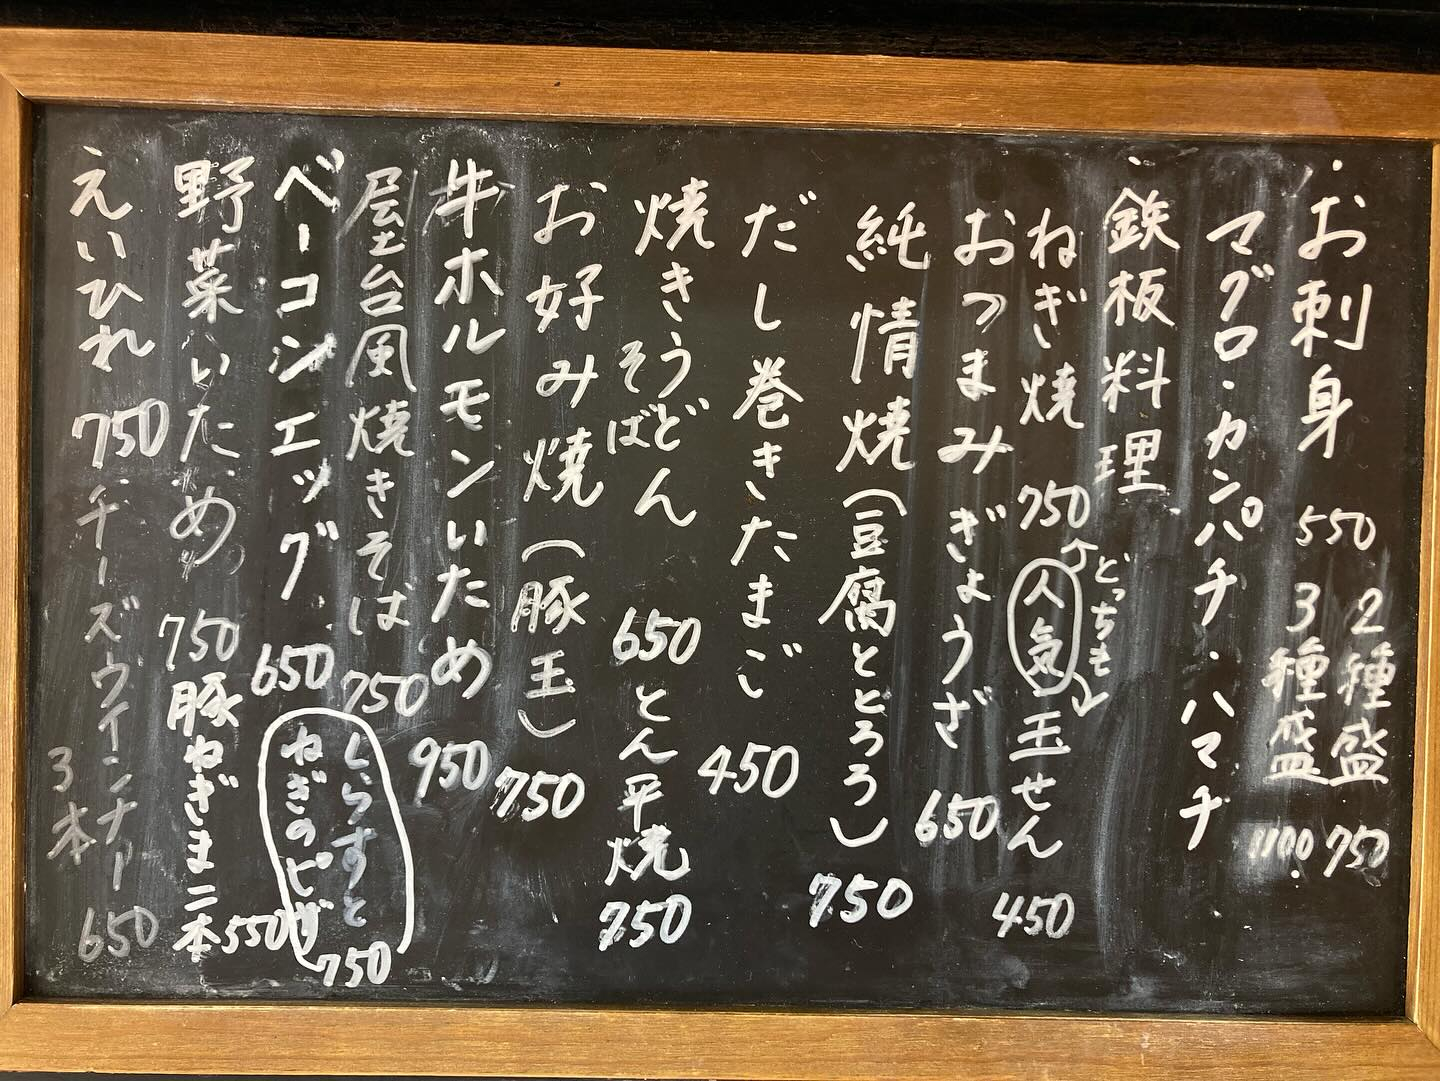 ・お刺身 550 2種盛 750
3種盛 1100
マグロ・カンパチ・ハマチ
・鉄板料理
ねぎ焼 750 人気 どっちも 玉せん 450
おつまみぎょうざ 650
純情焼(豆腐ととろろ) 750
だし巻きたまご 450
焼きうどん 650 とん平焼 750
そば
お好み焼(豚玉) 750
牛ホルモンいため 950
屋台風焼きそば 750
しらすと
ねぎのピザ 750
ベーコンエッグ 650
野菜いため 750 豚ねぎま二本 550
えいひれ 750 チーズウインナー
3本 650